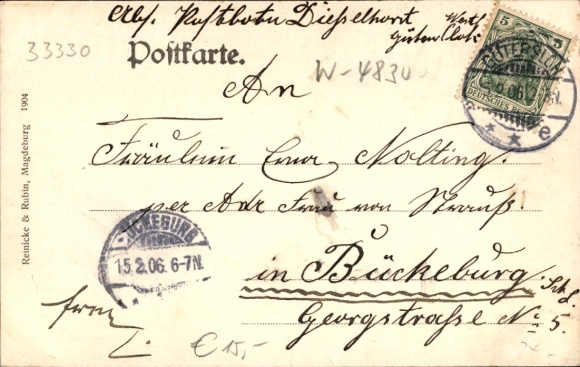 Abs. Postbote Diesselhorst West.
Gütersloh
33330
Postkarte.
W-4830
5 5
DEUTSCHES REICH
GÜTERSLOH
2.06.
* * e
An
Fräulein Erna Nolting.
per Adr Frau von Strauß.
in Bückeburg
Georgstraße No 5.
BÜCKEBURG
15.2.06.6-7N.
€ 15,-
Reinicke & Rubin, Magdeburg 1904